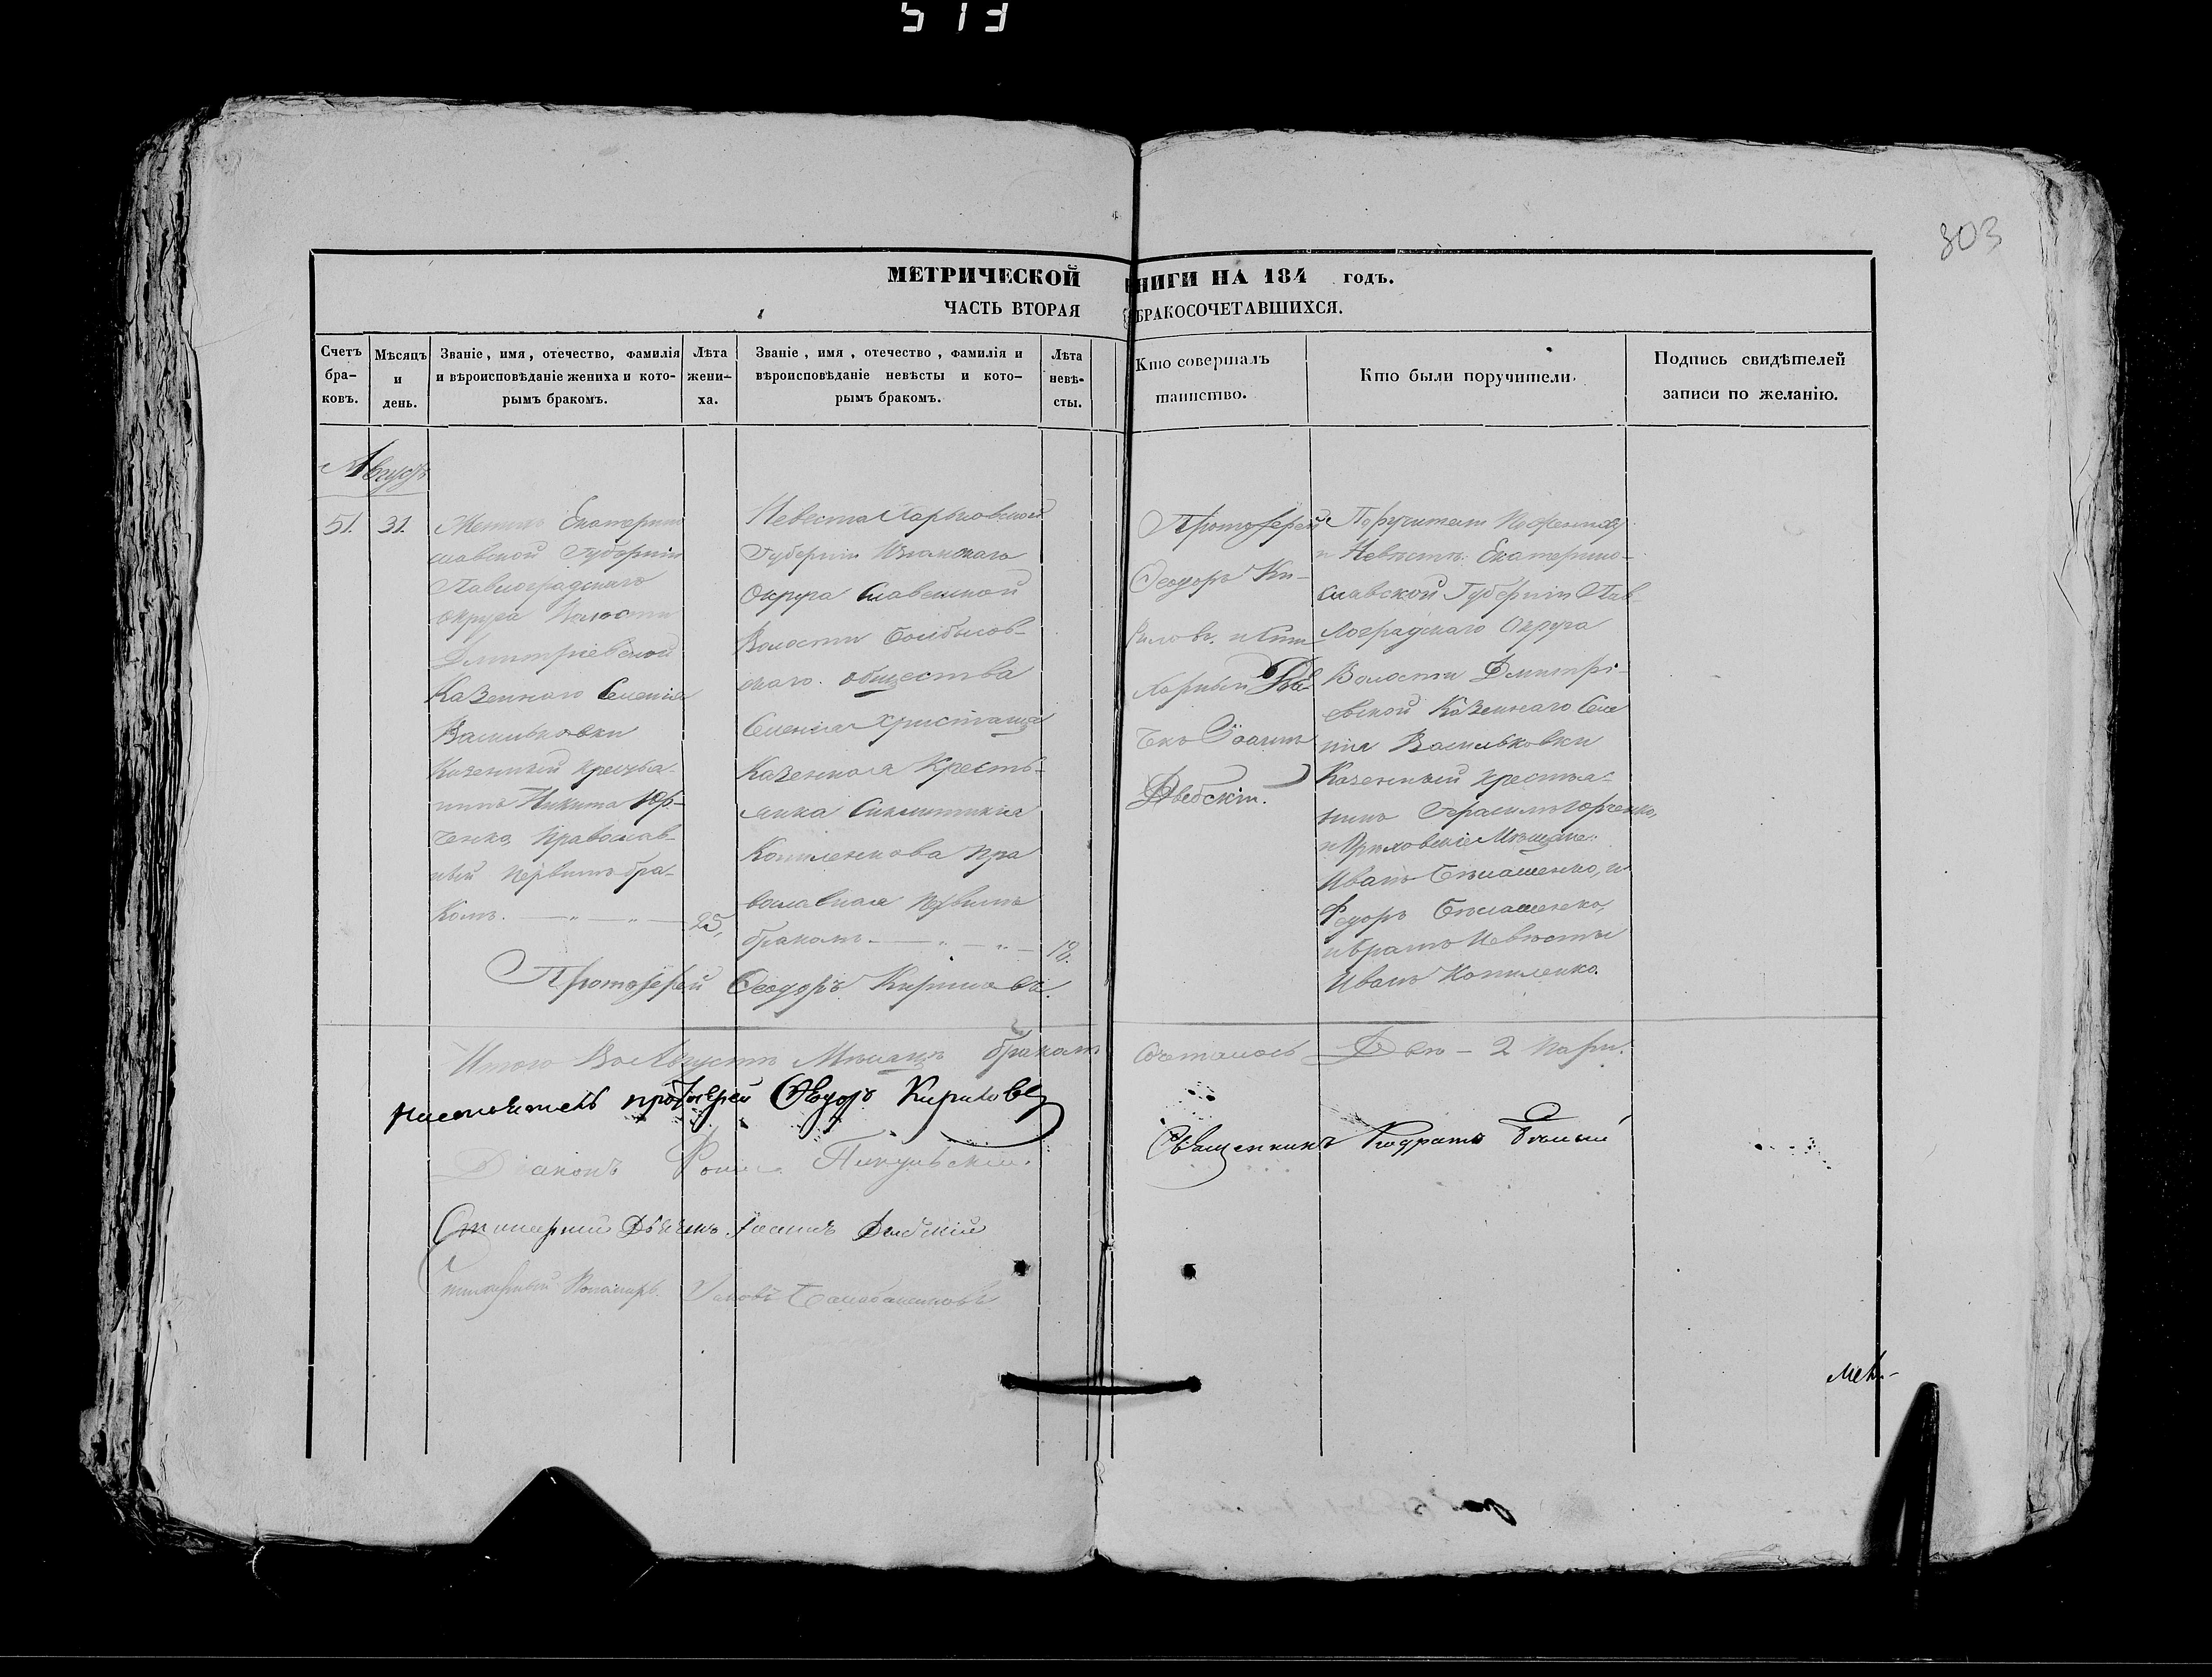 513
803
МЕТРИЧЕСКОЙ КНИГИ НА 184 годъ.
ЧАСТЬ ВТОРАЯ О БРАКОСОЧЕТАВШИХСЯ.
Счетъ браковъ.
Мѣсяцъ и день.
Званіе, имя, отечество, фамилія
и вѣроисповѣданіе жениха и кото-
рымъ бракомъ.
Лѣта
жени-
ха.
Званіе, имя, отечество, фамилія и
вѣроисповѣданіе невѣсты и кото-
рымъ бракомъ.
Лѣта
невѣ-
сты.
Кто совершалъ
таинство.
Кто были поручители.
Подпись свидѣтелей
записи по желанію.
Августъ
51. 31.
Женихъ Екатерино
славской Губерніи
Павлоградскаго
округа Волости
Дмитріевской
Казеннаго Селенія
Васильковки
Казенный крестья-
нинъ Никита Юр-
ченко Православ-
ный первымъ бра-
комъ. 25,
Невеста Харьковской
Губерніи Изюмскаго
Округа Славенской
Волости
скаго общества
Селенія Христища
Казенная Кресть-
янка
Котленкова пра
вославная первымъ
бракомъ. 18.
Протоіерей
Ѳеодоръ Ки-
риловъ. и Сти
харный Дья-
чекъ Іоаннъ
Поручители По Женихѣ
и Невѣстѣ: Екатерино-
славской Губерніи Пав-
лоградскаго Округа
Волости Дмитрі-
евской Казеннаго Селе
нія Васильковки
Казенный крестья-
нинъ Герасимъ Юрченко,
и Мѣщане:
Иванъ Бѣлашенко, и
Федоръ Бѣлашенко,
и братъ Невѣсты
Иванъ Котленко.
Протоіерей Ѳеодоръ Кириловъ.
Итого Во Августѣ Мѣсяцѣ бракомъ сочеталось Двѣ - 2 пары.
Настоятель протоіерей Ѳеодоръ Кириловъ
Священникъ Кодратъ Бѣлый
Діаконъ
Стихарный Дьячекъ Іоаннъ
Стихарный Пономарь Яковъ